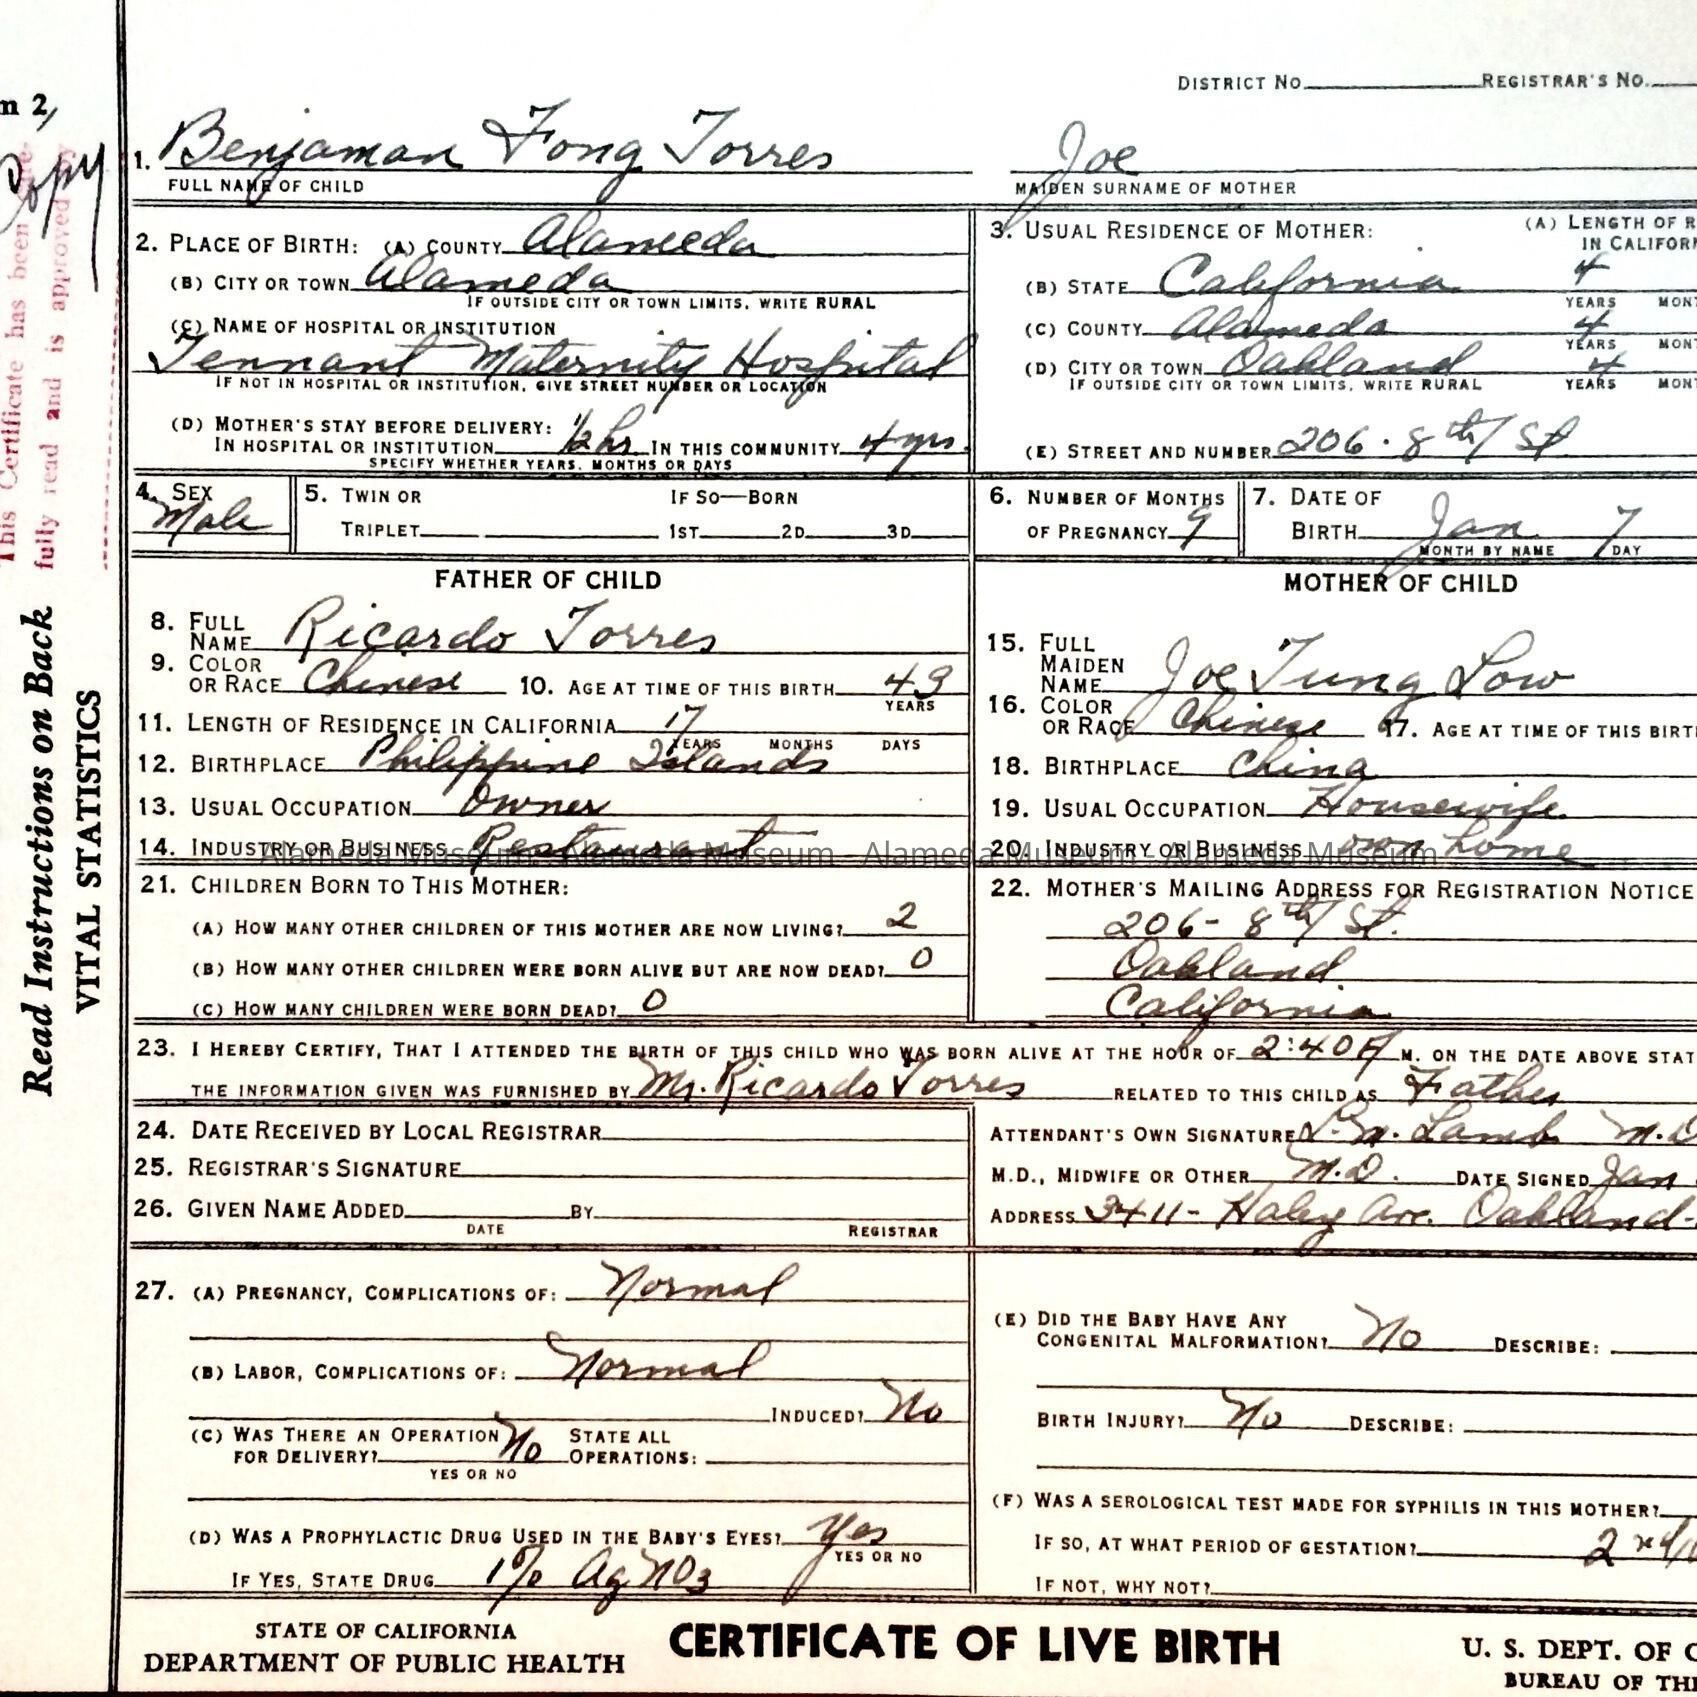 DISTRICT NO. REGISTRAR'S NO.
m 2,
Copy
This Certificate has been
fully read and is approved by
Read Instructions on Back
VITAL STATISTICS
1. Benjaman Fong Torres Joe
FULL NAME OF CHILD MAIDEN SURNAME OF MOTHER
2. PLACE OF BIRTH: (A) COUNTY Alameda
(B) CITY OR TOWN Alameda
IF OUTSIDE CITY OR TOWN LIMITS, WRITE RURAL
(C) NAME OF HOSPITAL OR INSTITUTION
Tennant Maternity Hospital
IF NOT IN HOSPITAL OR INSTITUTION, GIVE STREET NUMBER OR LOCATION
(D) MOTHER'S STAY BEFORE DELIVERY:
IN HOSPITAL OR INSTITUTION 1/2 hr. IN THIS COMMUNITY 4 yrs.
SPECIFY WHETHER YEARS, MONTHS OR DAYS
3. USUAL RESIDENCE OF MOTHER: (A) LENGTH OF R
IN CALIFORN
(B) STATE California 4
YEARS MONT
(C) COUNTY Alameda 4
YEARS MONT
(D) CITY OR TOWN Oakland 4
IF OUTSIDE CITY OR TOWN LIMITS, WRITE RURAL YEARS MONT
(E) STREET AND NUMBER 206 - 8th St
4. SEX
Male
5. TWIN OR IF SO—BORN
TRIPLET 1ST 2D 3D
6. NUMBER OF MONTHS
OF PREGNANCY 9
7. DATE OF
BIRTH Jan 7
MONTH BY NAME DAY
FATHER OF CHILD
8. FULL
NAME Ricardo Torres
9. COLOR
OR RACE Chinese 10. AGE AT TIME OF THIS BIRTH 43
YEARS
11. LENGTH OF RESIDENCE IN CALIFORNIA 17
YEARS MONTHS DAYS
12. BIRTHPLACE Philippine Islands
13. USUAL OCCUPATION Owner
14. INDUSTRY OR BUSINESS Restaurant
MOTHER OF CHILD
15. FULL
MAIDEN
NAME Joe Tung Low
16. COLOR
OR RACE Chinese 17. AGE AT TIME OF THIS BIRT
18. BIRTHPLACE China
19. USUAL OCCUPATION Housewife
20. INDUSTRY OR BUSINESS own home
Alameda Museum - Alameda Museum - Alameda Museum - Alameda Museum
21. CHILDREN BORN TO THIS MOTHER:
(A) HOW MANY OTHER CHILDREN OF THIS MOTHER ARE NOW LIVING? 2
(B) HOW MANY OTHER CHILDREN WERE BORN ALIVE BUT ARE NOW DEAD? 0
(C) HOW MANY CHILDREN WERE BORN DEAD? 0
22. MOTHER'S MAILING ADDRESS FOR REGISTRATION NOTICE
206 - 8th St.
Oakland
California
23. I HEREBY CERTIFY, THAT I ATTENDED THE BIRTH OF THIS CHILD WHO WAS BORN ALIVE AT THE HOUR OF 2:40 P M. ON THE DATE ABOVE STAT
THE INFORMATION GIVEN WAS FURNISHED BY Mr. Ricardo Torres RELATED TO THIS CHILD AS Father
24. DATE RECEIVED BY LOCAL REGISTRAR
25. REGISTRAR'S SIGNATURE
26. GIVEN NAME ADDED BY
DATE REGISTRAR
ATTENDANT'S OWN SIGNATURE L. M. Lamb M.D
M.D., MIDWIFE OR OTHER M.D. DATE SIGNED Jan
ADDRESS 3411 - Haley Ave. Oakland -
27. (A) PREGNANCY, COMPLICATIONS OF: Normal
(B) LABOR, COMPLICATIONS OF: Normal
INDUCED? No
(C) WAS THERE AN OPERATION No STATE ALL
FOR DELIVERY? OPERATIONS:
YES OR NO
(D) WAS A PROPHYLACTIC DRUG USED IN THE BABY'S EYES? Yes
YES OR NO
IF YES, STATE DRUG 1% AgNO3
(E) DID THE BABY HAVE ANY
CONGENITAL MALFORMATION? No DESCRIBE:
BIRTH INJURY? No DESCRIBE:
(F) WAS A SEROLOGICAL TEST MADE FOR SYPHILIS IN THIS MOTHER?
IF SO, AT WHAT PERIOD OF GESTATION? 2nd
IF NOT, WHY NOT?
STATE OF CALIFORNIA
DEPARTMENT OF PUBLIC HEALTH
CERTIFICATE OF LIVE BIRTH
U. S. DEPT. OF C
BUREAU OF TH